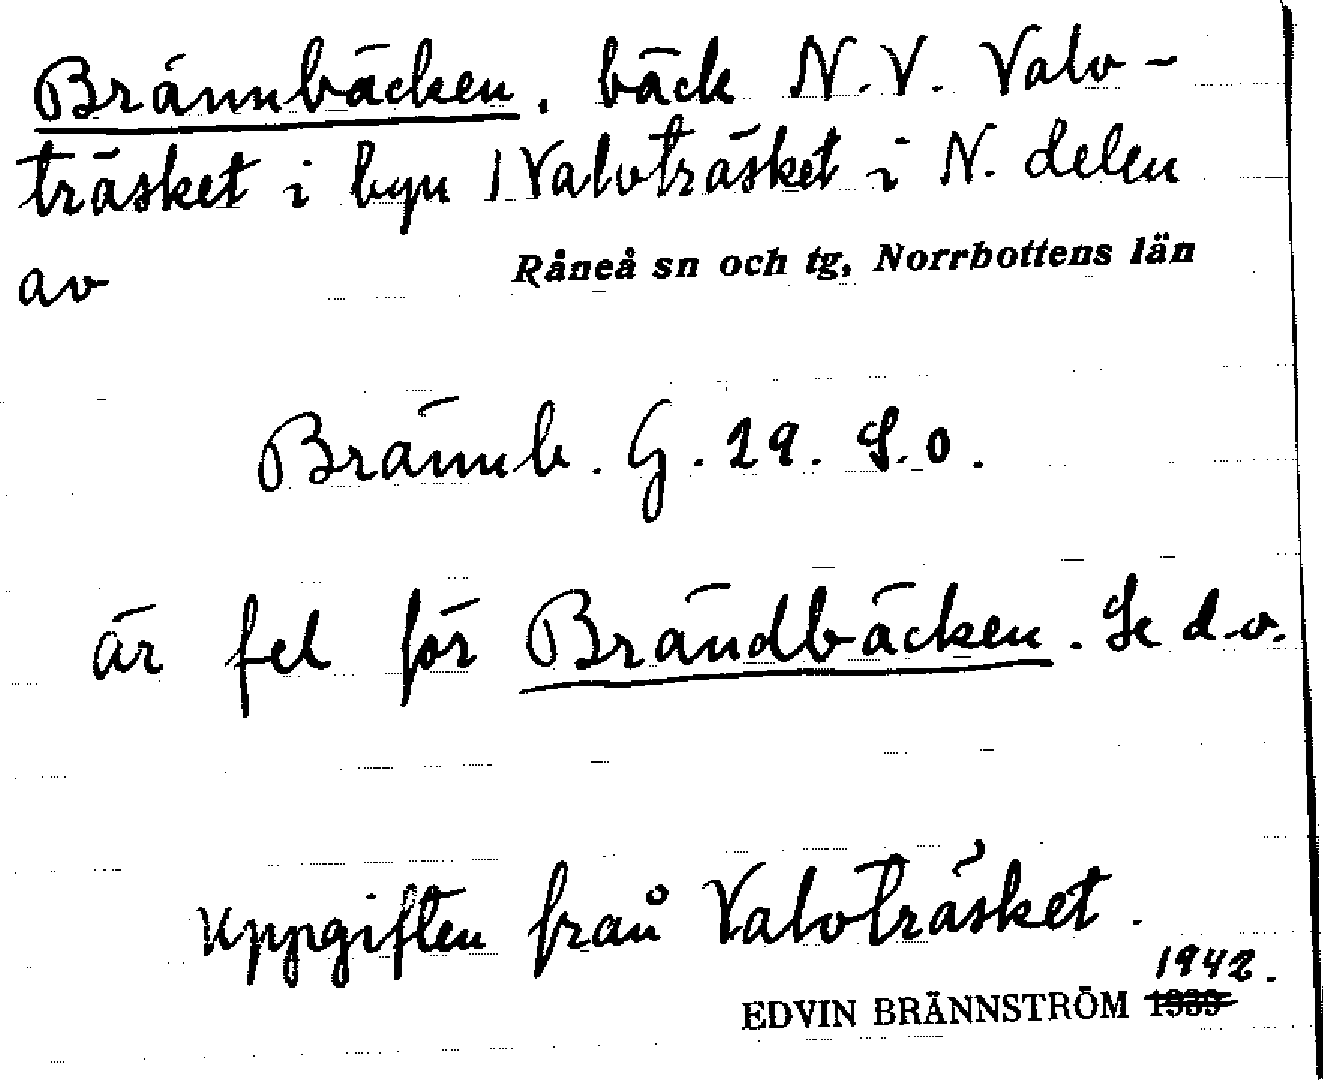 Brännbäcken, bäck N.V. Valv-
träsket i byn Valvträsket i N. delen
av Råneå sn och tg, Norrbottens län
Brännb. G. 29. S.O.
är fel för Brändbäcken. Se d.o.
Uppgiften från Valvträsket.
1942.
EDVIN BRÄNNSTRÖM 1939